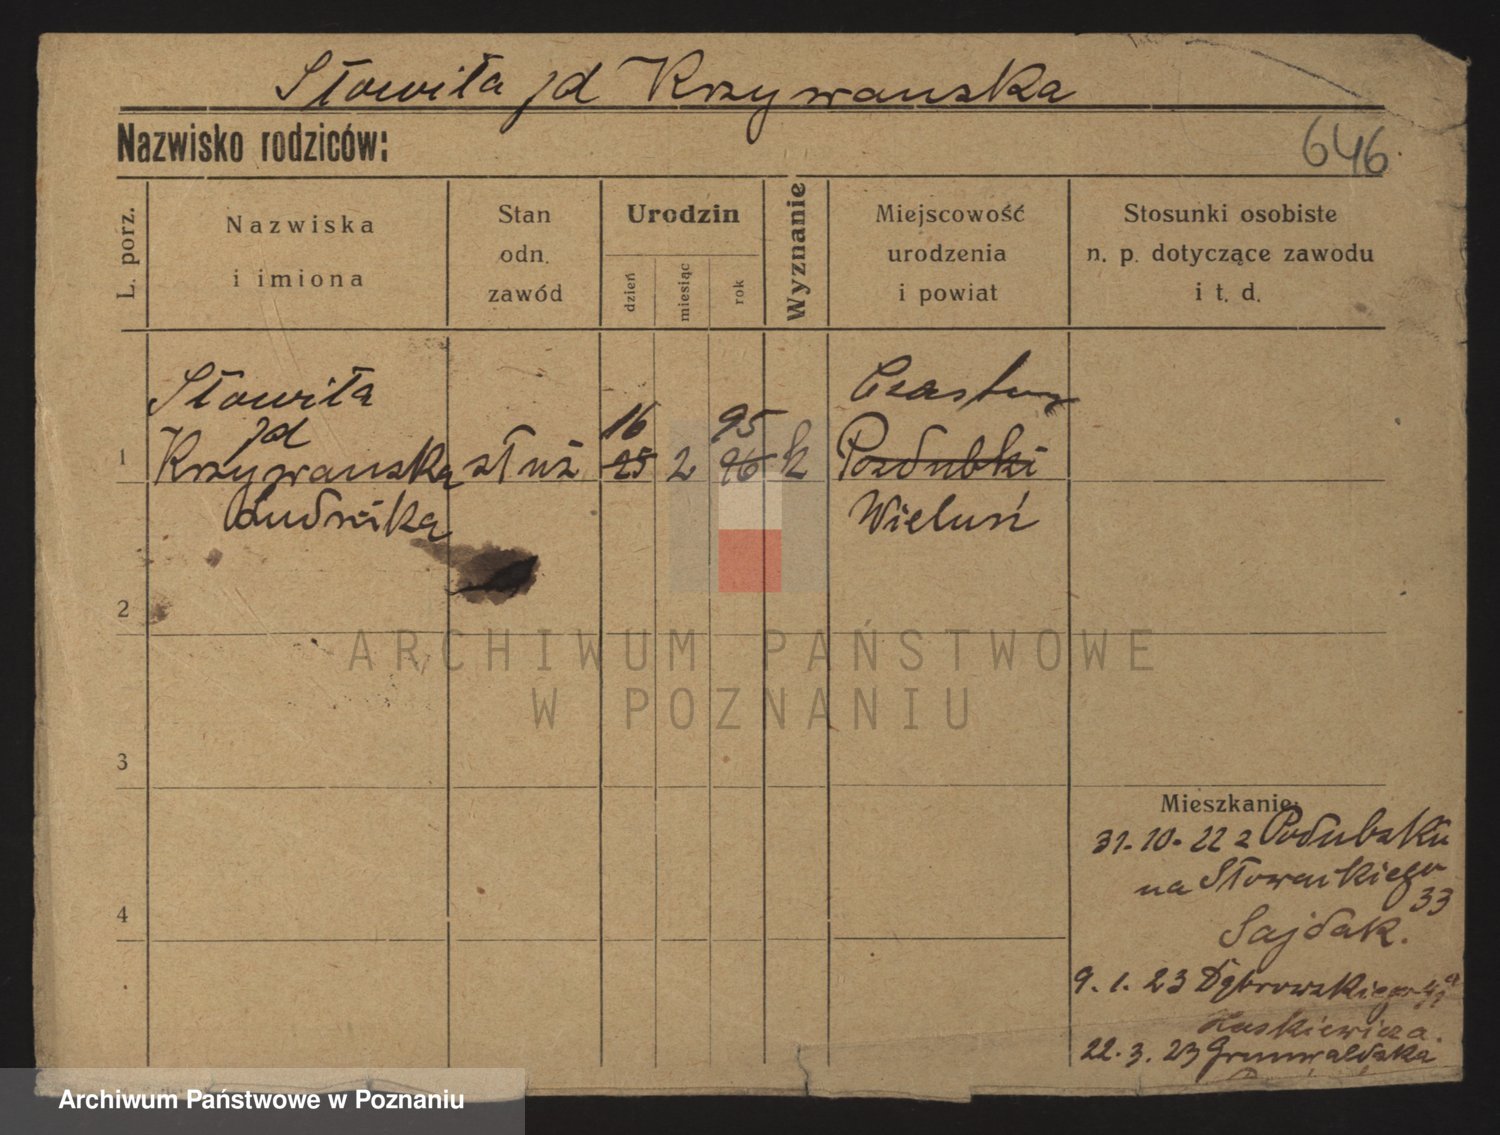 Słowiła jd Krzywanska
Nazwisko rodziców:
646.
L. porz.
Nazwiska
i imiona
Stan
odn.
zawód
Urodzin
dzień
miesiąc
rok
Wyznanie
Miejscowość
urodzenia
i powiat
Stosunki osobiste
n. p. dotyczące zawodu
i t. d.
Słowiła
jd
1 Krzywanska
Ludwika
służ
16
25 2
95
96
k
Czastary
Pozdubki
Wieluń
2
3
4
Mieszkanie:
31.10.22 z Podubzku
na Słowackiego
33
Sajdak.
9.1.23 Dąbrowskiego
22.3.23 Grunwaldzka
ARCHIWUM PAŃSTWOWE
W POZNANIU
Archiwum Państwowe w Poznaniu